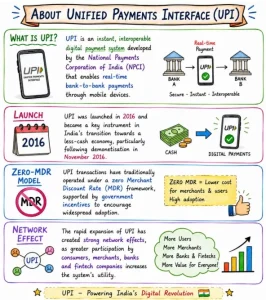 ABOUT UNIFIED PAYMENTS INTERFACE (UPI)
WHAT IS UPI?
UPI
UPI is an instant, interoperable
digital payment system developed
by the National Payments
Corporation of India (NPCI)
that enables real-time
bank-to-bank payments
through mobile devices.
Real-time
Payment
UPI
BANK
A
BANK
B
Secure - Instant - Interoperable
LAUNCH
2016
UPI was launched in 2016 and
became a key instrument in
India's transition towards a
less-cash economy, particularly
following demonetisation in
November 2016.
CASH
UPI
DIGITAL PAYMENTS
ZERO-MDR
MODEL
MDR
UPI transactions have traditionally
operated under a zero Merchant
Discount Rate (MDR) framework,
supported by government
incentives to encourage
widespread adoption.
ZERO MDR = Lower cost
for merchants & users
High adoption
NETWORK
EFFECT
UPI
The rapid expansion of UPI has
created strong network effects,
as greater participation by
consumers, merchants, banks
and fintech companies
increases the system's utility.
More Users
More Merchants
More Banks & Fintechs
More Value for Everyone!
UPI – Powering India's Digital Revolution